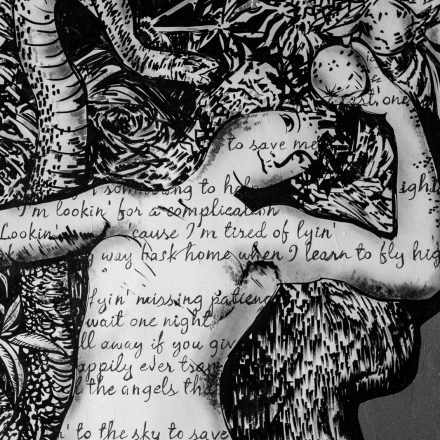 to save me
to
I'm lookin' for a complication
Lookin' cause I'm tired of lyin'
way back home when I learn to fly hig
fyin' missing patienc
wait one night
ll away if you giv
appily ever
the angels tha
n' to the sky to save